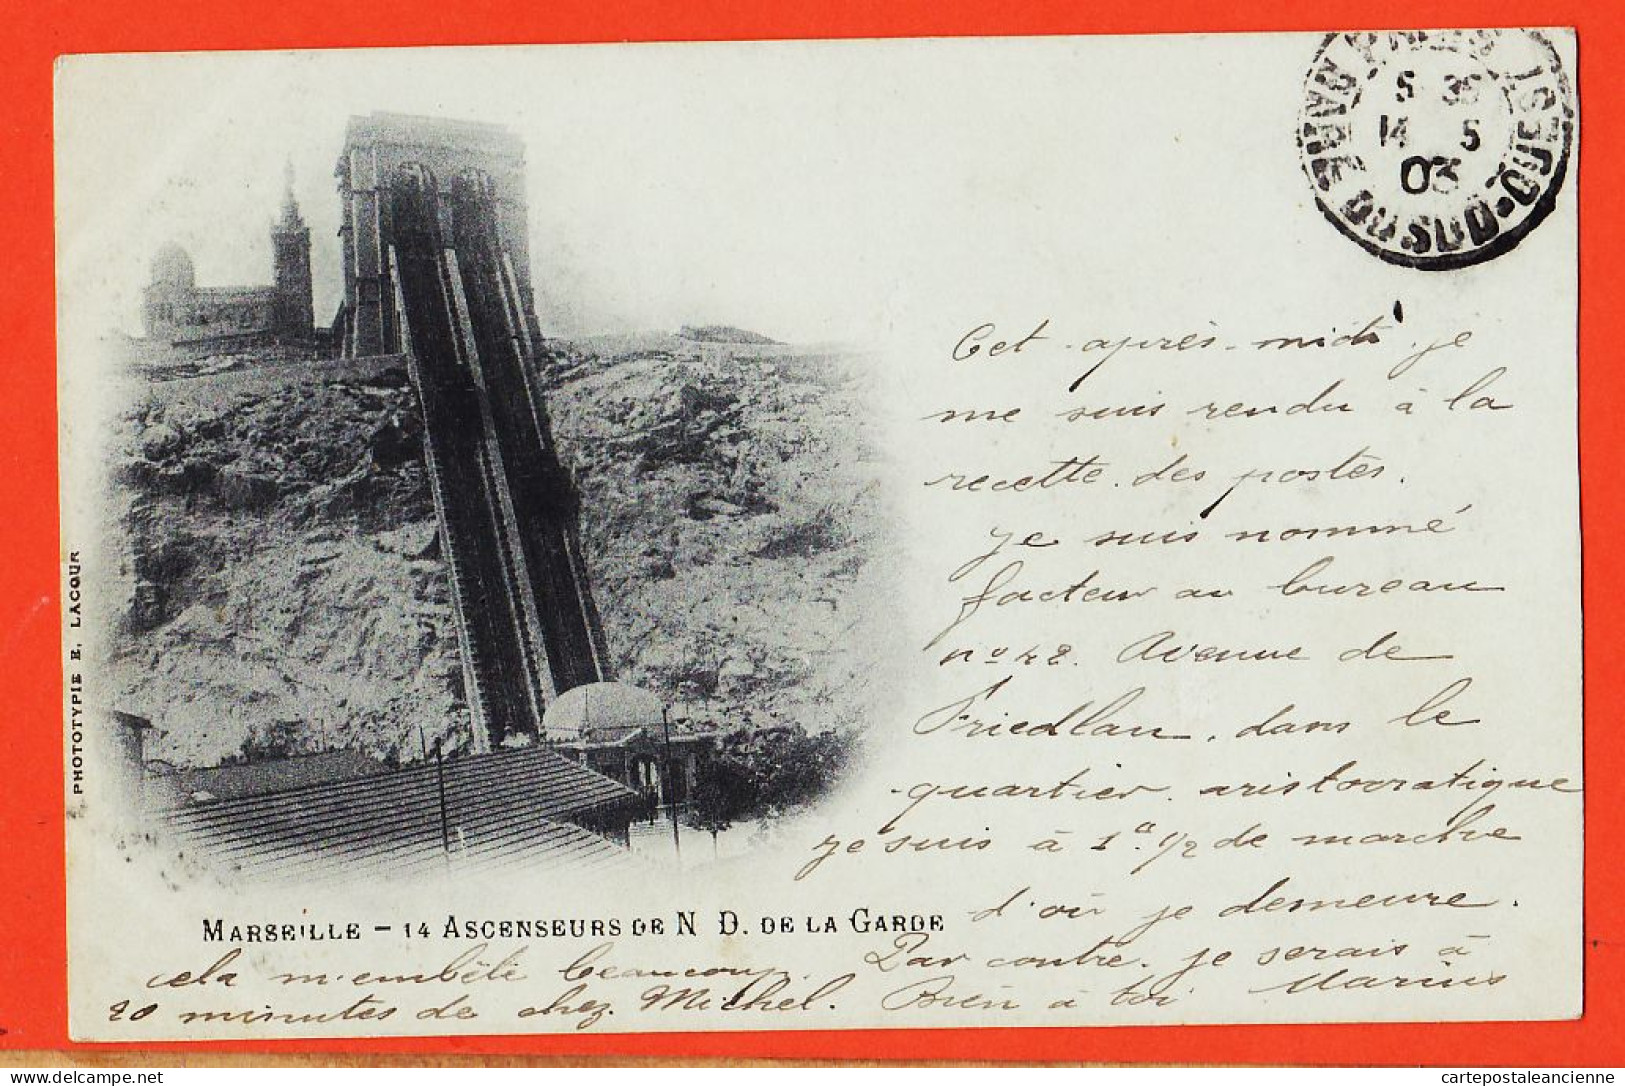 PARIS
GARE DU SUD-OUEST
5 35
14 5
03
Cet après-midi je
me suis rendu à la
recette des postes.
je suis nommé
facteur au bureau
no 42. Avenue de
Friedlan, dans le
quartier aristocratique
je suis à 1 1/2 de marche
d'où je demeure.
MARSEILLE - 14 ASCENSEURS DE N D. DE LA GARDE
cela m'embête beaucoup. Par contre je serais à
20 minutes de chez Michel. Bien à toi Marius
PHOTOTYPIE E. LACOUR
www.delcampe.net
cartepostaleancienne